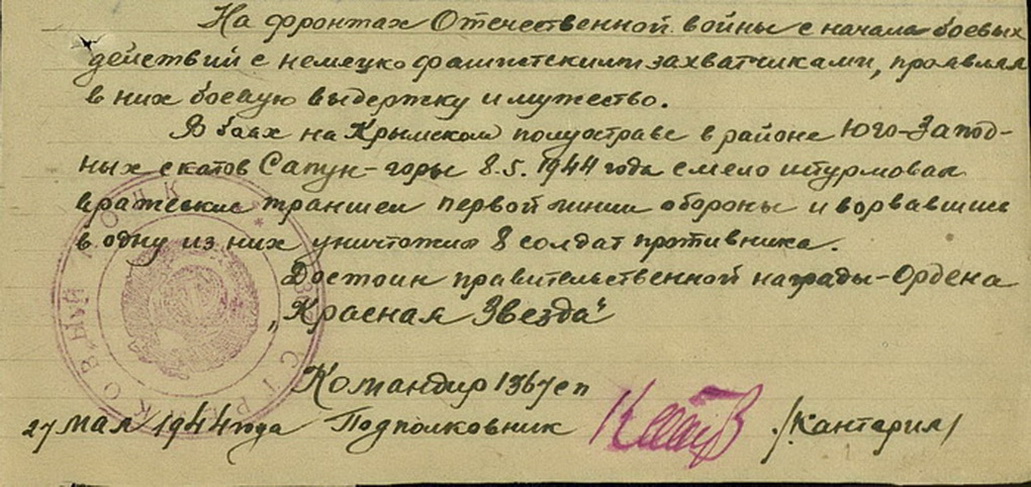 На фронтах Отечественной войны с начала боевых
действий с немецко фашистскими захватчиками, проявляя
в них боевую выдержку и мужество.
В боях на Крымском полуостраве в районе Юго-Запод-
ных скатов Сапун-горы 8.5.1944 года смело штурмовал
вражеские траншеи первой линии обороны и ворвавшись
в одну из них уничтожил 8 солдат противника.
Достоин правительственной награды-Ордена
„Красная Звезда“
Командир 1367 сп
27 мая 1944 года Подполковник /Кантария/